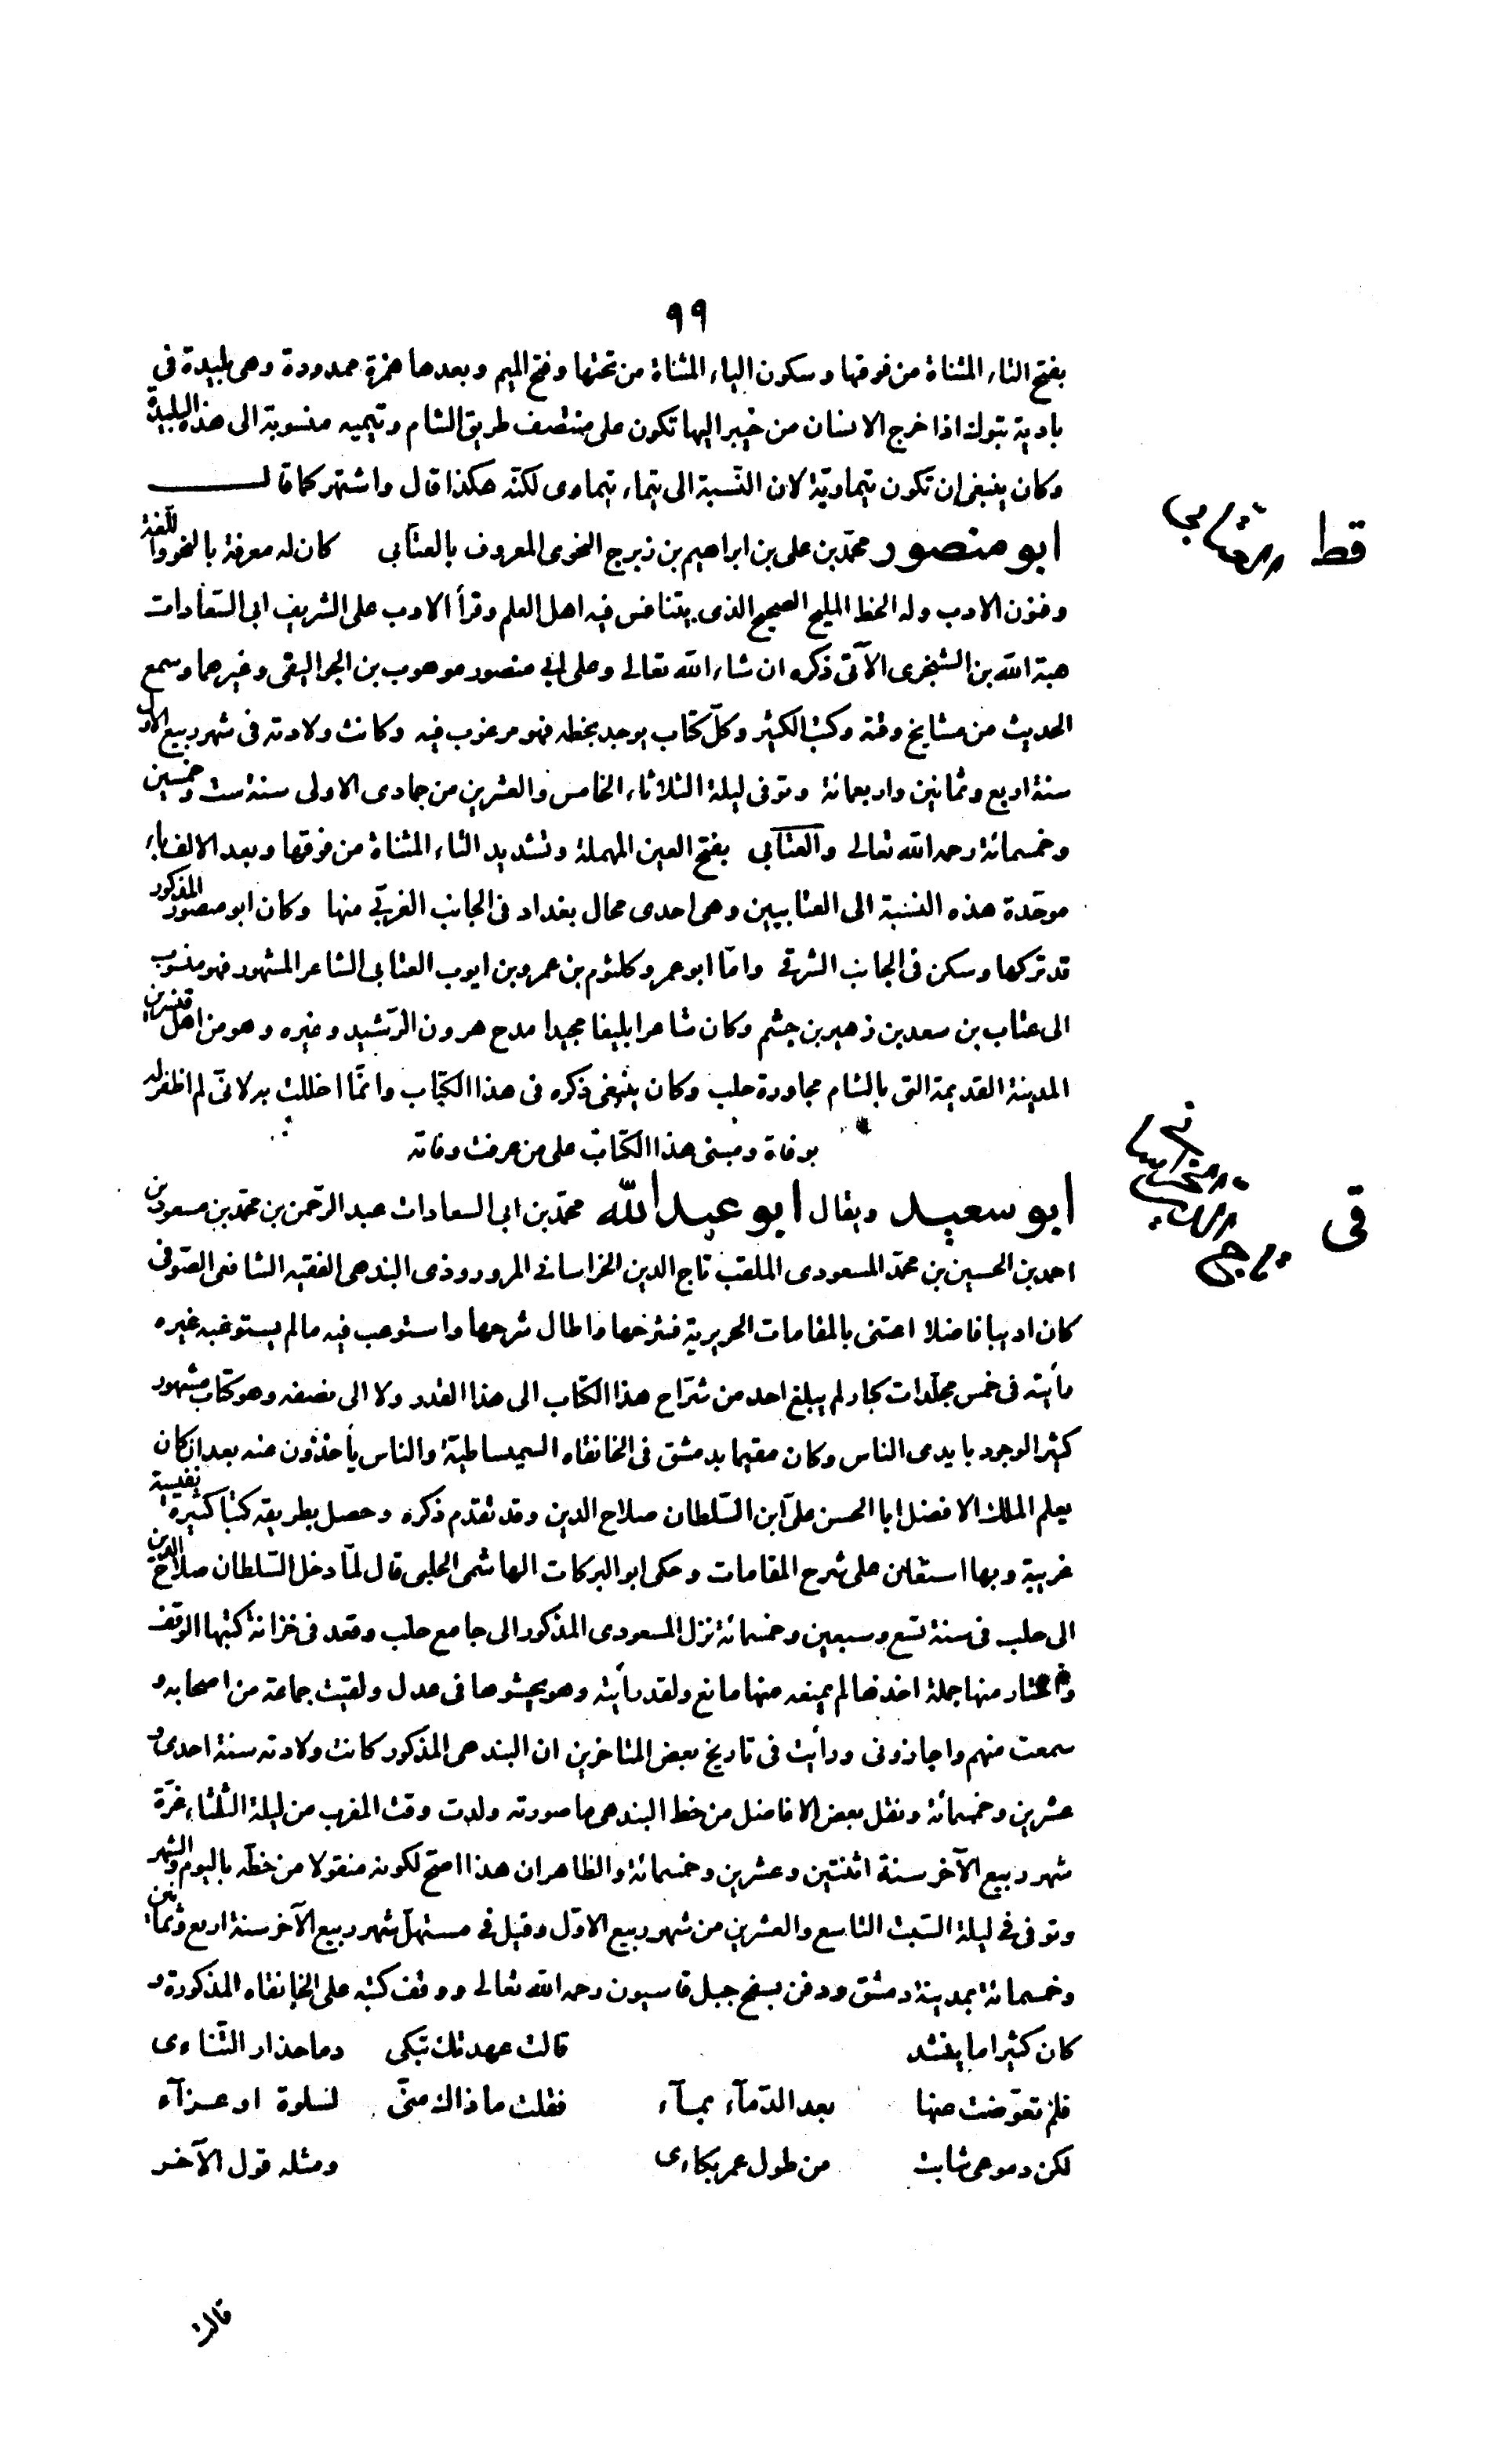 ٩٩
بفتح التاء المثناة من فوقها وسكون الياء المثناة من تحتها وفتح الميم وبعدها همزة ممدودة وهى بليدة فى
بادية تبوك اذا خرج الانسان من خيبر اليها تكون على منتصف طريق الشام وتيميه منسوبة الى هذه البليدة
وكان ينبغى ان تكون تيماوية لان النسبة الى تيماء تيماوى لكنه هكذا قال واشتهر كما قال
ابو منصور محمد بن على بن ابراهيم بن زبرج النحوى المعروف بالعتابى كان له معرفة بالنحو واللغة
قط
العتابى
وفنون الادب وله الخط المليح الصحيح الذى يتنافس فيه اهل العلم وقرأ الادب على الشريف ابى السعادات
هبة الله بن الشجرى الآتى ذكره ان شاء الله تعالى وعلى ابى منصور موهوب بن الجواليقى وغيرهما وسمع
الحديث من مشايخ وقته وكتب الكثير وكل كتاب يوجد بخطه فهو مرغوب فيه وكانت ولادته فى شهر ربيع الاول
سنة اربع وثمانين واربعمائة وتوفى ليلة الثلاثاء الخامس والعشرين من جمادى الاولى سنة ست وخمسين
وخمسمائة رحمه الله تعالى والعتابى بفتح العين المهملة وتشديد التاء المثناة من فوقها وبعد الالف باء
موحدة هذه النسبة الى العتابيين وهى احدى محال بغداد فى الجانب الغربى منها وكان ابو منصور المذكور
قد تركها وسكن فى الجانب الشرقى واما ابو عمرو كلثوم بن عمرو بن ايوب العتابى الشاعر المشهور فهو منسوب
الى عتاب بن سعد بن زهير بن جشم وكان شاعرا بليغا مجيدا مدح هرون الرشيد وغيره وهو من اهل قنسرين
المدينة القديمة التى بالشام مجاورة حلب وكان ينبغى ذكره فى هذا الكتاب وانما اخللت به لانى لم اظفر له
بوفاة ومبنى هذا الكتاب على من عرفت وفاته
ابو سعيد ويقال ابو عبد الله محمد بن ابى السعادات عبد الرحمن بن محمد بن مسعود بن
قى
احمد بن الحسين بن محمد المسعودى الملقب تاج الدين الخراسانى المروروذى البندهى الفقيه الشافعى الصوفى
كان اديبا فاضلا اعتنى بالمقامات الحريرية فشرحها واطال شرحها واستوعب فيه ما لم يستوعبه غيره
رأيته فى خمس مجلدات كبار لم يبلغ احد من شراح هذا الكتاب الى هذا القدر ولا الى نصفه وهو كتاب مشهور
كثير الوجود بايدى الناس وكان مقيما بدمشق فى الخانقاه السميساطية والناس يأخذون عنه بعد ان كان
يعلم الملك الافضل ابا الحسن على ابن السلطان صلاح الدين وقد تقدم ذكره وحصل بطريقه كتبا كثيرة نفيسة
غريبة وبها استعان على شرح المقامات وحكى ابو البركات الهاشمى الحلبى قال لما دخل السلطان صلاح الدين
الى حلب فى سنة تسع وسبعين وخمسمائة نزل المسعودى المذكور الى جامع حلب وقعد فى خزانة كتبها الوقف
واختار منها جملة اخذها لم يمنعه منها مانع ولقد رأيته وهو يحشوها فى عدل ولقيت جماعة من اصحابه و
سمعت منهم واجازونى ورأيت فى تاريخ بعض المتاخرين ان البندهى المذكور كانت ولادته سنة احدى و
عشرين وخمسمائة ونقل بعض الافاضل من خط البندهى ما صورته ولدت وقت المغرب من ليلة الثلثاء غرة
شهر ربيع الآخر سنة اثنتين وعشرين وخمسمائة والظاهر ان هذا اصح لكونه منقولا من خطه باليوم والشهر
وتوفى فى ليلة السبت التاسع والعشرين من شهر ربيع الاول وقيل فى مستهل شهر ربيع الآخر سنة اربع وثمانين
وخمسمائة بمدينة دمشق ودفن بسفح جبل قاسيون رحمه الله تعالى ووقف كتبه على الخانقاه المذكورة و
كان كثيرا ما ينشد قالت عهدتك تبكى دما حذار التنائى
فلم تعوضت عنها بعد الدمآء بمآء فقلت ما ذاك منى لسلوة او عزآء
لكن دموعى شابت من طول عمر بكائى ومثله قول الآخر
قالت